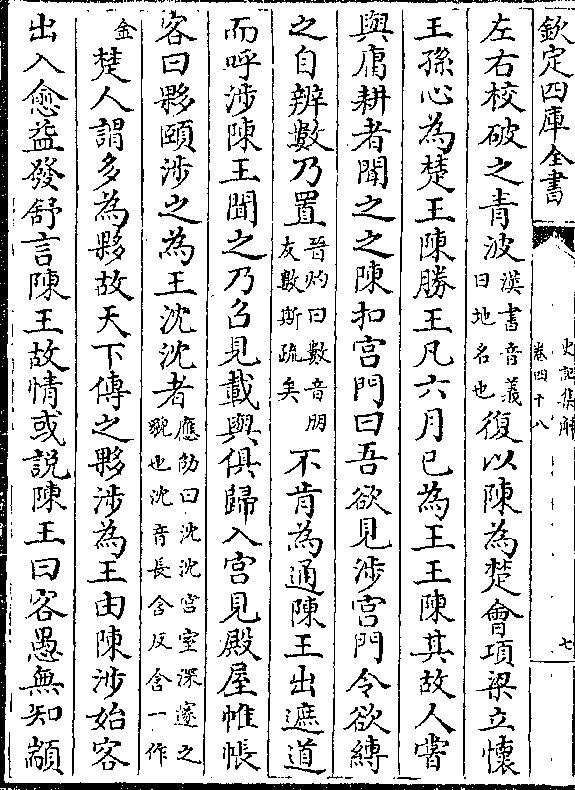 欽定四庫全書
史記集解
卷四十八
七
左右校破之青波漢書音義曰地名也復以陳為楚會項梁立懷
王孫心為楚王陳勝王凡六月已為王王陳其故人嘗
與傭耕者聞之之陳扣宮門曰吾欲見涉宮門令欲縛
之自辨數乃置晉灼曰數音朋友數斯疏矣不肯為通陳王出遮道
而呼涉陳王聞之乃召見載與俱歸入宮見殿屋帷帳
客曰夥頤涉之為王沈沈者應劭曰沈沈宮室深邃之貌也沈音長含反含一作
金楚人謂多為夥故天下傳之夥涉為王由陳涉始客
出入愈益發舒言陳王故情或說陳王曰客愚無知顓